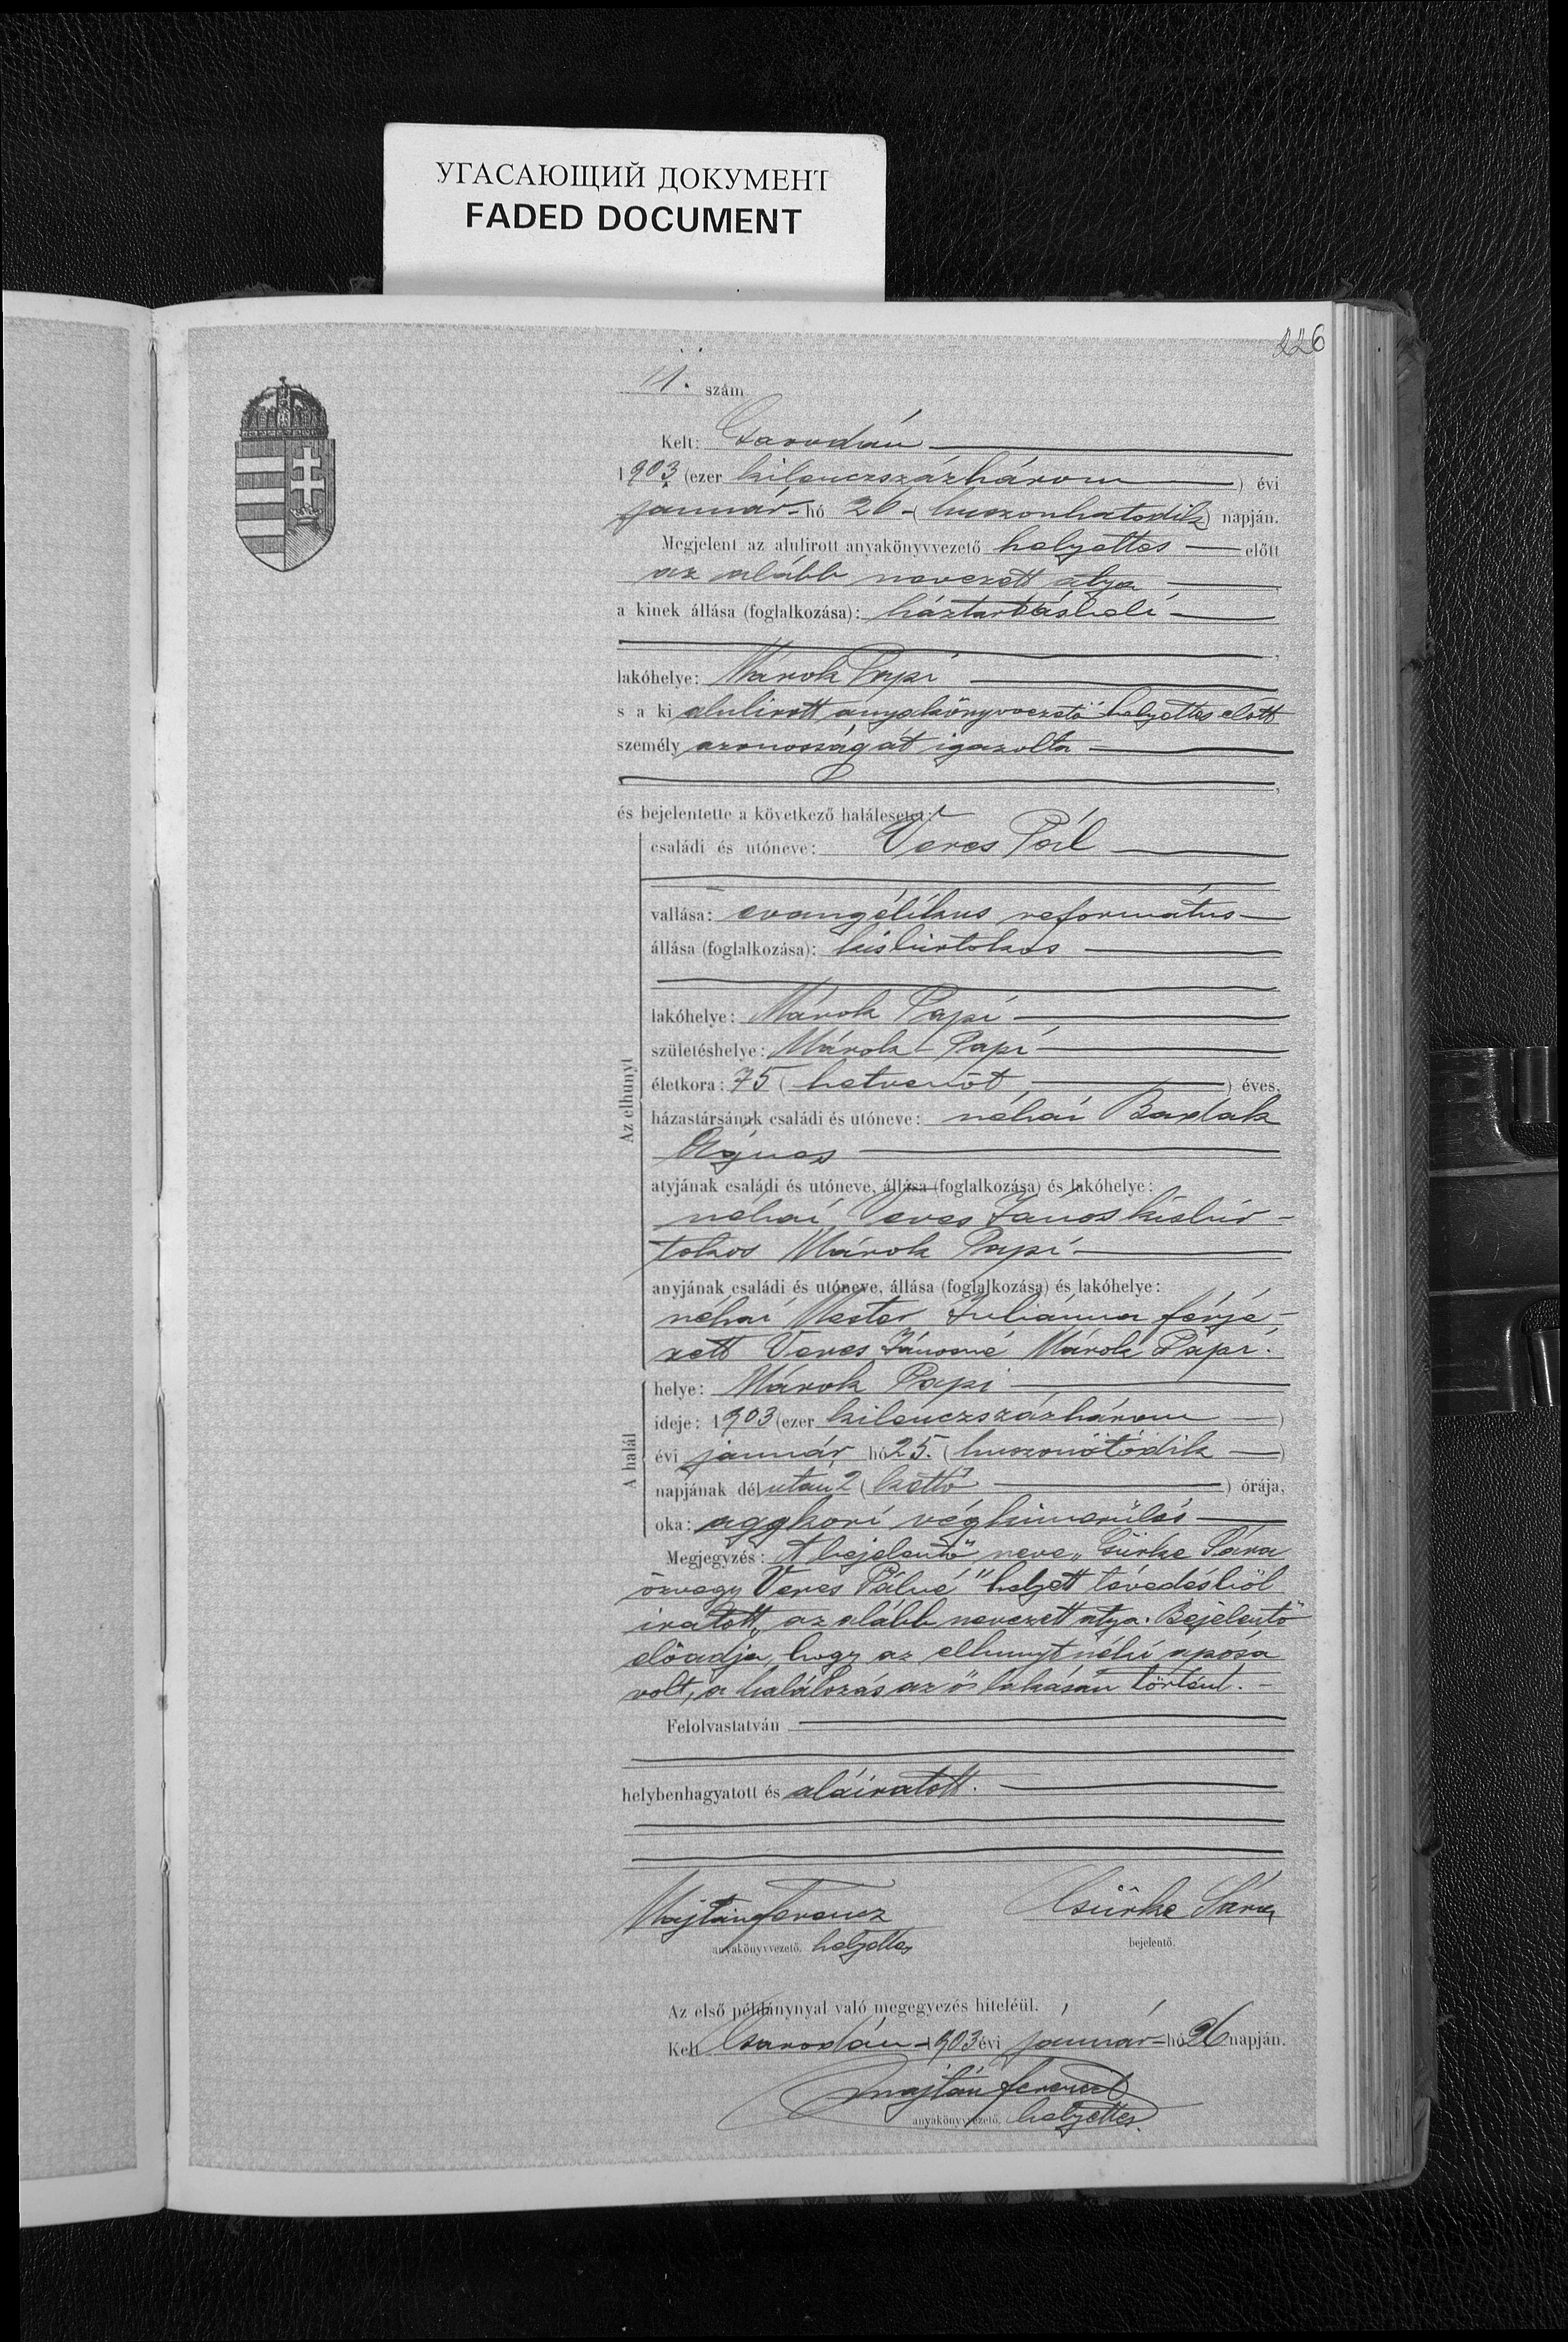 УГАСАЮЩИЙ ДОКУМЕНТ
FADED DOCUMENT
226
11. szám
Kelt: Csarodán
1903 (ezer kilenczszázhárom) évi
január hó 26 (huszonhatodik) napján.
Megjelent az alulirott anyakönyvvezető helyettes előtt
az alább nevezett atya
a kinek állása (foglalkozása): háztartásbeli
lakóhelye: Márok Papi
s a ki alulirott anyakönyvvezető helyettes előtt
személyazonosságát igazolta
és bejelentette a következő halálesetet:
Az elhunyt
családi és utóneve: Veres Pál
vallása: evangélikus református
állása (foglalkozása): kisbirtokos
lakóhelye: Márok Papi
születéshelye: Márok Papi
életkora: 75 (hetvenöt) éves,
házastársának családi és utóneve: néhai Baxlak
Ágnes
atyjának családi és utóneve, állása (foglalkozása) és lakóhelye:
néhai Veres János kisbir-
tokos Márok Papi
anyjának családi és utóneve, állása (foglalkozása) és lakóhelye:
néhai Mester Juliánna férje-
zett Veres Jánosné Márok Papi.
A halál
helye: Márok Papi
ideje: 1903 (ezer kilenczszázhárom)
évi január hó 25. (huszonötödik)
napjának délután 2 (kettő) órája,
oka: aggkori végkimerülés
Megjegyzés: A bejelentő neve „Csürke Sára
özvegy Veres Pálné" helyett tévedésböl
iratott „az alább nevezett atya. Bejelentő
előadja, hogy az elhunyt néki apósa
volt, a halálozás az ő lakásán történt.
Felolvastatván
helybenhagyatott és aláiratott.
Majtán Ferencz
anyakönyvvezető. helyettes
Csürke Sára
bejelentő.
Az első példánynyal való megegyezés hiteléül.
Kelt Csarodán 1903 évi január hó 26 napján.
Majtán Ferencz
anyakönyvvezető. helyettes.